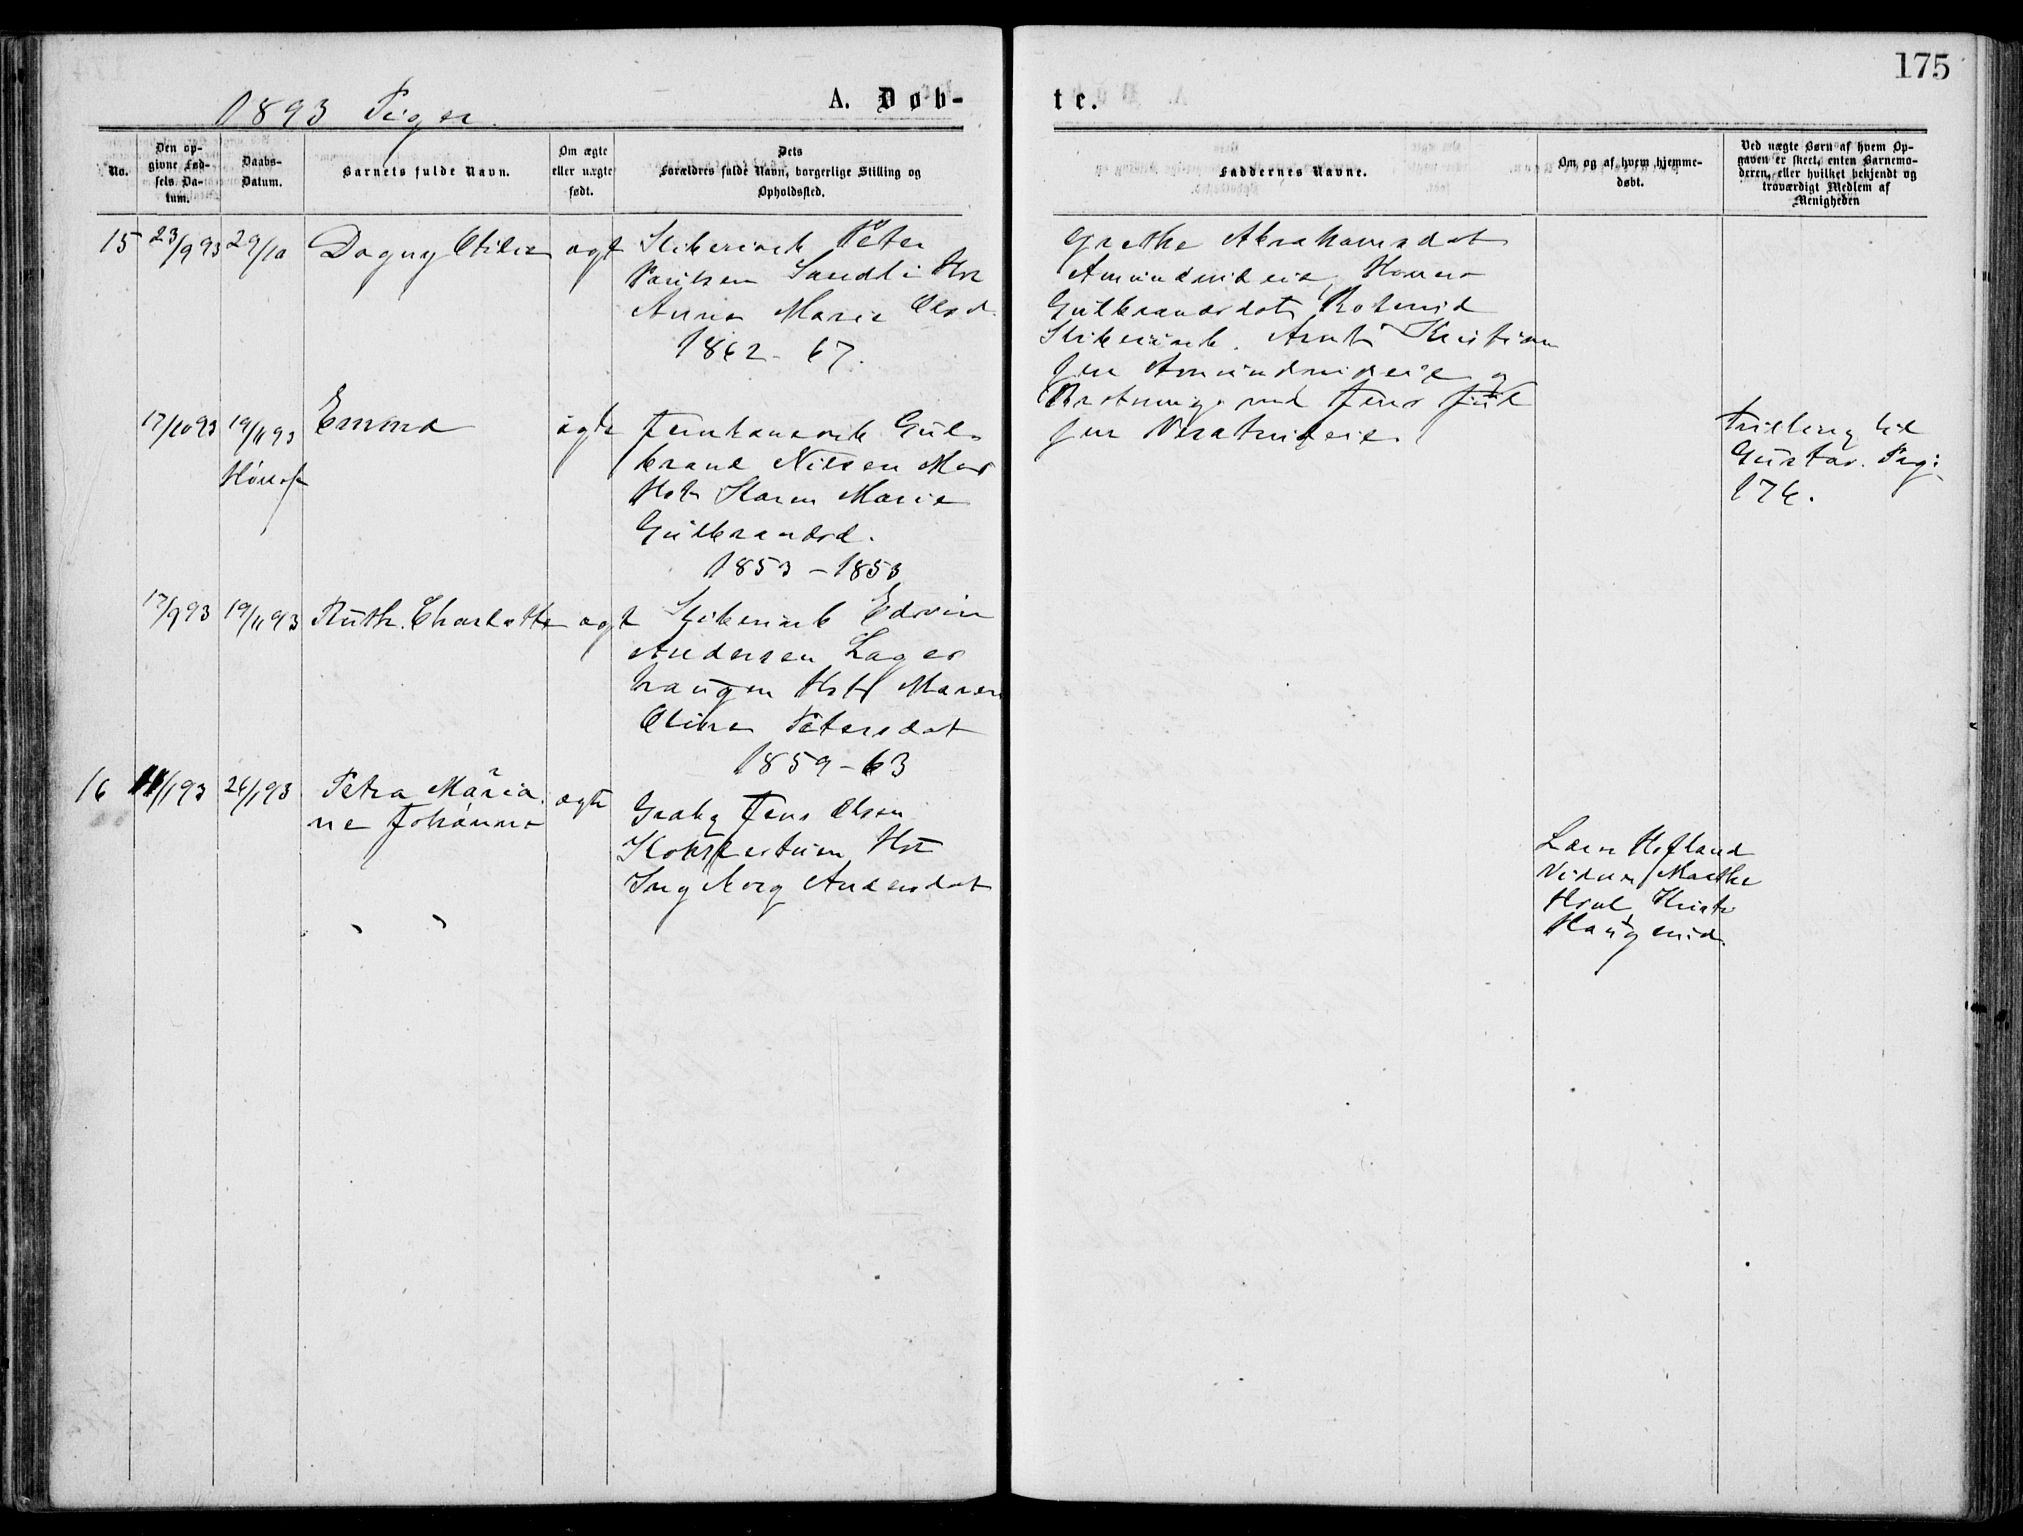 175
1893 Piger.
A. Døb-
te.
No.
Den op-
givne Fød-
sels Da-
tum.
Daabs-
Datum.
Barnets fulde Navn.
Om ægte
eller uægte
født.
Dets
Forældres fulde Navn, borgerlige Stilling og
Opholdssted.
Faddernes Navne.
Om og af hvem hjemme-
døbt.
Ved uægte Børn af hvem Op-
gaven er skeet, enten Barnemo-
deren, eller hvilket bekjendt og
troværdigt Medlem af
Menigheden
15 23/9 93 29/10 Dagny Otilie ægt Sliberiarb Peter
Paulsen Sandli
Anna Marie Olsd.
1862 - 67.
Grethe Abrahamsdat
Amundrudeie
Gulbrandsdat
Sliberiarb. Arnt Kristian
sen Amundrudeie og
Jens
sen
17/10 93 19/11 93 Emma ægte Gul-
Hønefos
brand Nilsen Moe
Karen Marie
Gulbrandsd.
1853 - 1853
Tvilling til
Gustav. Pag:
176.
17/9 93 19/11 93 Ruth Charlotte ægt Sliberiarb Edvin
Andersen Lager
haugen Maren
Oline Petersdat
1859 - 63
16 11/1 93 26/1 93 Petra Maria
ne Johanne ægte
Gaabr Jens Olsen
Ingeborg Andersdat
Hofland
Marthe
Haugerud.